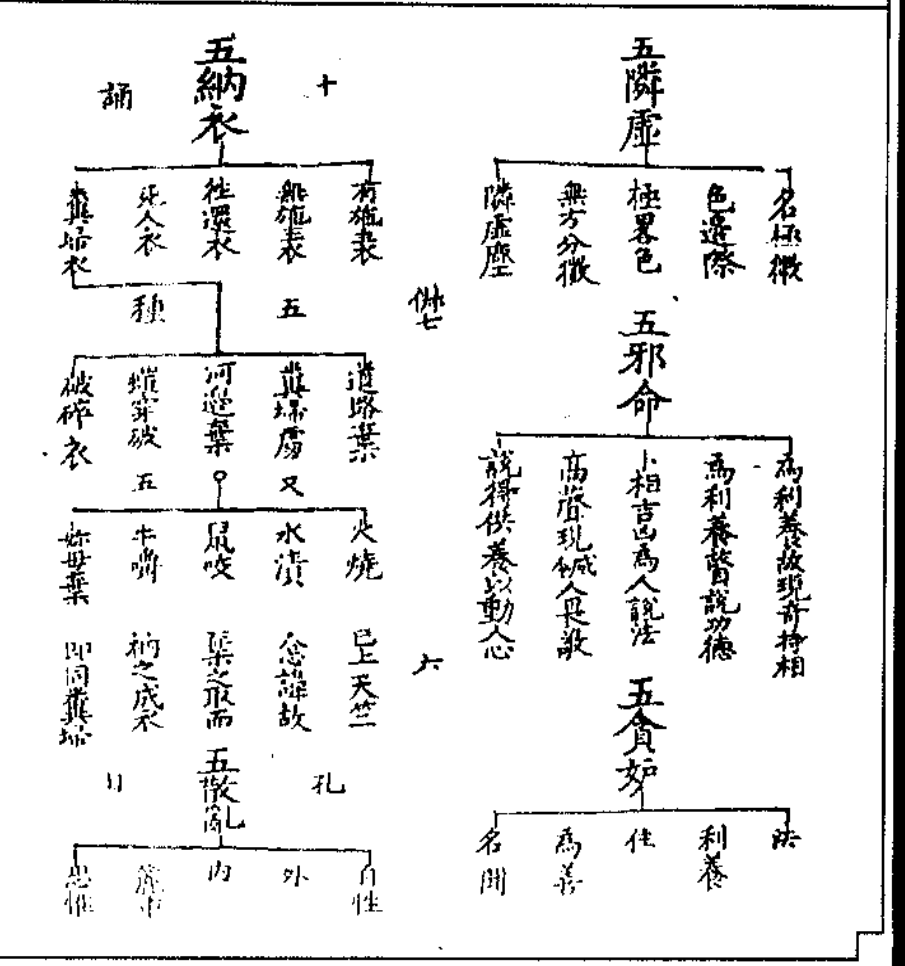 五隣虛
名極微
色邊際
極畧色
無方分微
隣虛塵
五邪命
為利養故現奇特相
為利養自說功德
卜相吉凶為人說法
高聲現威人畏敬
說得供養以動人心
五貪妒
法
利養
住
為善
名聞
六
十
五納衣
誦
有施表
無施表
往還衣
死人衣
糞埽衣
五
種
道路棄
糞埽處
河邊棄
破碎衣
又
五
火燒
水漬
鼠咬
牛嚼
奶母棄
已上天竺
忌諱故
棄之取而
衲之成衣
即同糞埽
五散亂
自性
外
內
思惟